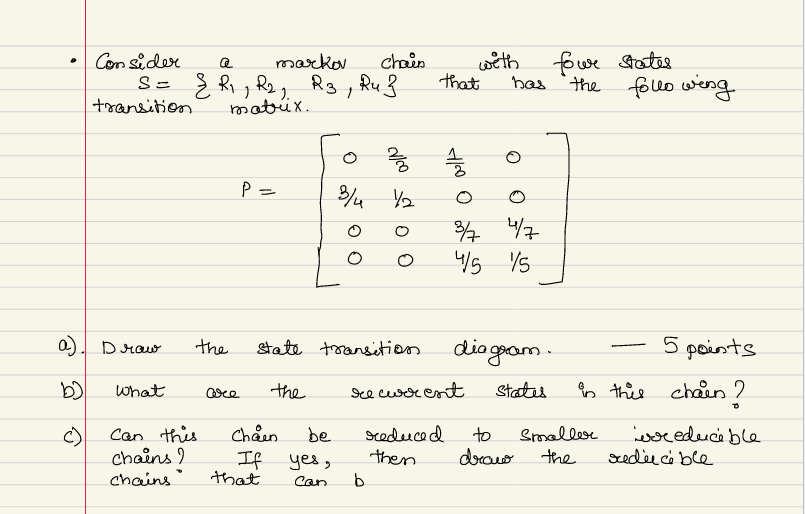 • Consider a markov chain with four states
S = { R1, R2, R3, R4 } that has the following
transition matrix.
P = [ 0 2/3 1/3 0
3/4 1/2 0 0
0 0 3/7 4/7
0 0 4/5 1/5 ]
a). Draw the state transition diagram. — 5 points
b) What are the recurrent states in this chain?
c) Can this chain be reduced to smaller irreducible
chains? If yes, then draw the reducible
chains that can b